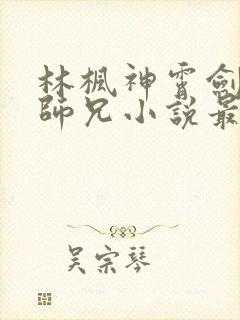 林楓神霄劍
師兄小說最
吴宗琴